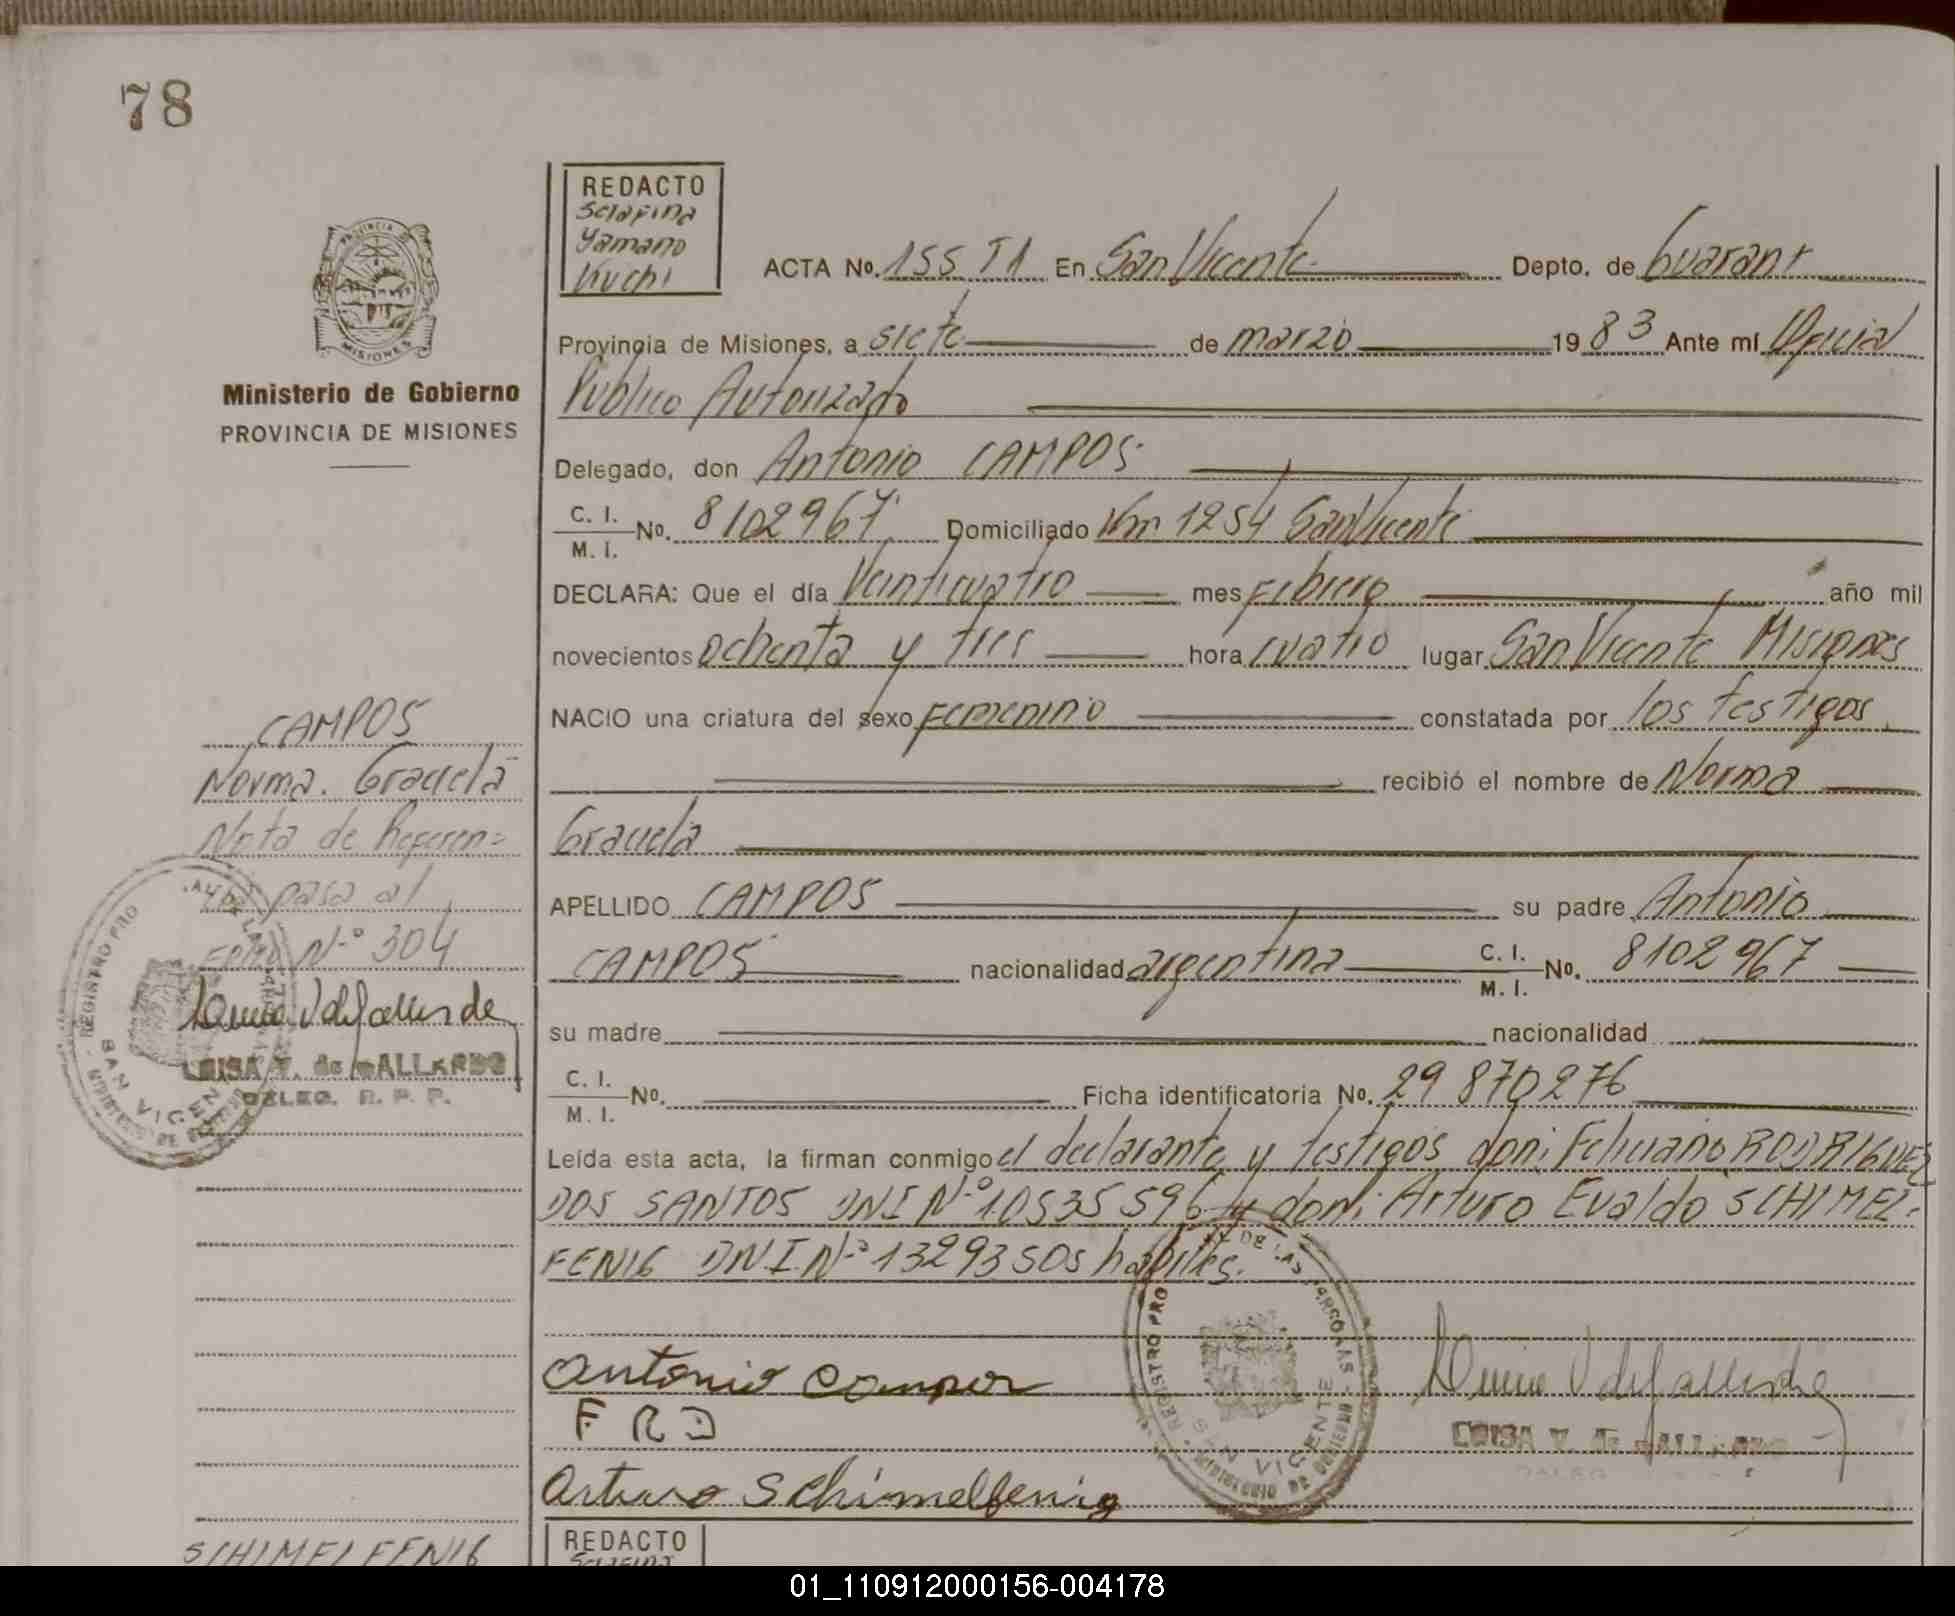 78
REDACTO
Serafina
Yamano
Kuchi
ACTA No. 155 T1 En San Vicente Depto. de Guaraní
Provincia de Misiones, a siete de marzo 1983 Ante mí Oficial
Público Autorizado
Delegado, don Antonio CAMPOS
C. I.
M. I.
No. 8102967 Domiciliado Km 1254 San Vicente
DECLARA: Que el día Veinticuatro mes Febrero año mil
novecientos ochenta y tres hora cuatro lugar San Vicente Misiones
NACIO una criatura del sexo Femenino constatada por los testigos
recibió el nombre de Norma
Graciela
APELLIDO CAMPOS su padre Antonio
CAMPOS nacionalidad argentina C. I.
M. I. No. 8102967
su madre nacionalidad
C. I.
M. I.
No. Ficha identificatoria No. 29 870276
Leída esta acta, la firman conmigo el declarante y testigos don: Feliciano RODRIGUEZ
DOS SANTOS DNI Nº 10535596 y don: Arturo Evaldo SCHIMEL-
FENIG D.N.I. Nº 13293505 hábiles.
Antonio Campos
F R D
Arturo Schimelfenig
LUISA V. de GALLARDO
REGISTRO PRO DE LAS PERSONAS
SAN VICENTE
MINISTERIO DE GOBIERNO
PROVINCIA DE
MISIONES
Ministerio de Gobierno
PROVINCIA DE MISIONES
CAMPOS
Norma. Graciela
Nota de Referen=
cia pasa al
Folio Nº 304
LUISA V. de GALLARDO
DELEG. R. P. P.
REGISTRO PRO DE LAS PERSONAS
SAN VICENTE
MINISTERIO DE GOBIERNO
SCHIMELFENIG
REDACTO
Serafina
01_110912000156-004178